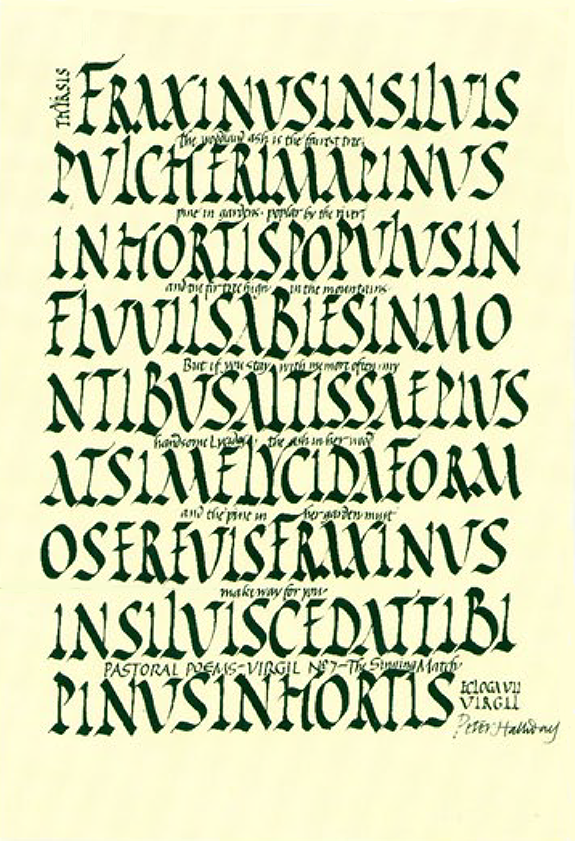 THYRSIS
FRAXINVSINSILVIS
the woodland ash is the fairest tree;
PVLCHERIMAPINVS
pine in gardens· poplar by the river;
INHORTISPOPVLVSIN
and the fir tree high in the mountains·
FLVVIISABIESINMO
But if you stay with me more often my
NTIBVSALTISSAEPIVS
handsome Lycidas· the ash in her wood
ATSIMELYCIDAFORM
and the pine in her garden must
OSEREVISFRAXINVS
make way for you·
INSILVISCEDATTIBI
PASTORAL POEMS-VIRGIL No7-The Singing Match
PINVSINHORTIS
ECLOGA VII
VIRGIL
Peter Halliday